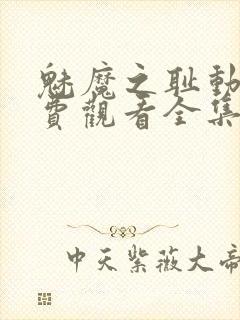 魅魔之耻動
費觀看全集
中天紫薇大帝